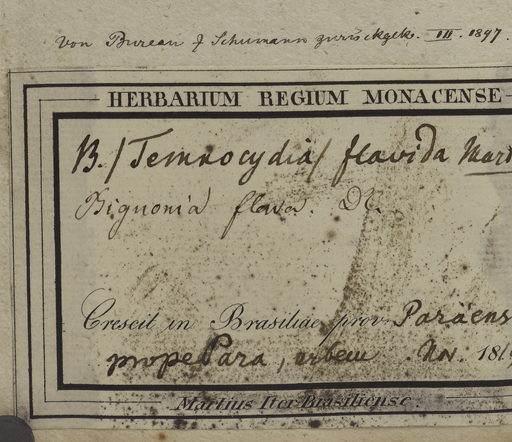 von Bureau & Schumann zurückgek. III. 1897.
HERBARIUM REGIUM MONACENSE
B. / Temnocydia / flavida Mart
Bignonia flava. DC.
Crescit in Brasiliae prov. Paraens
prope Para, urbem Nov. 181
Martius Iter Brasiliense.